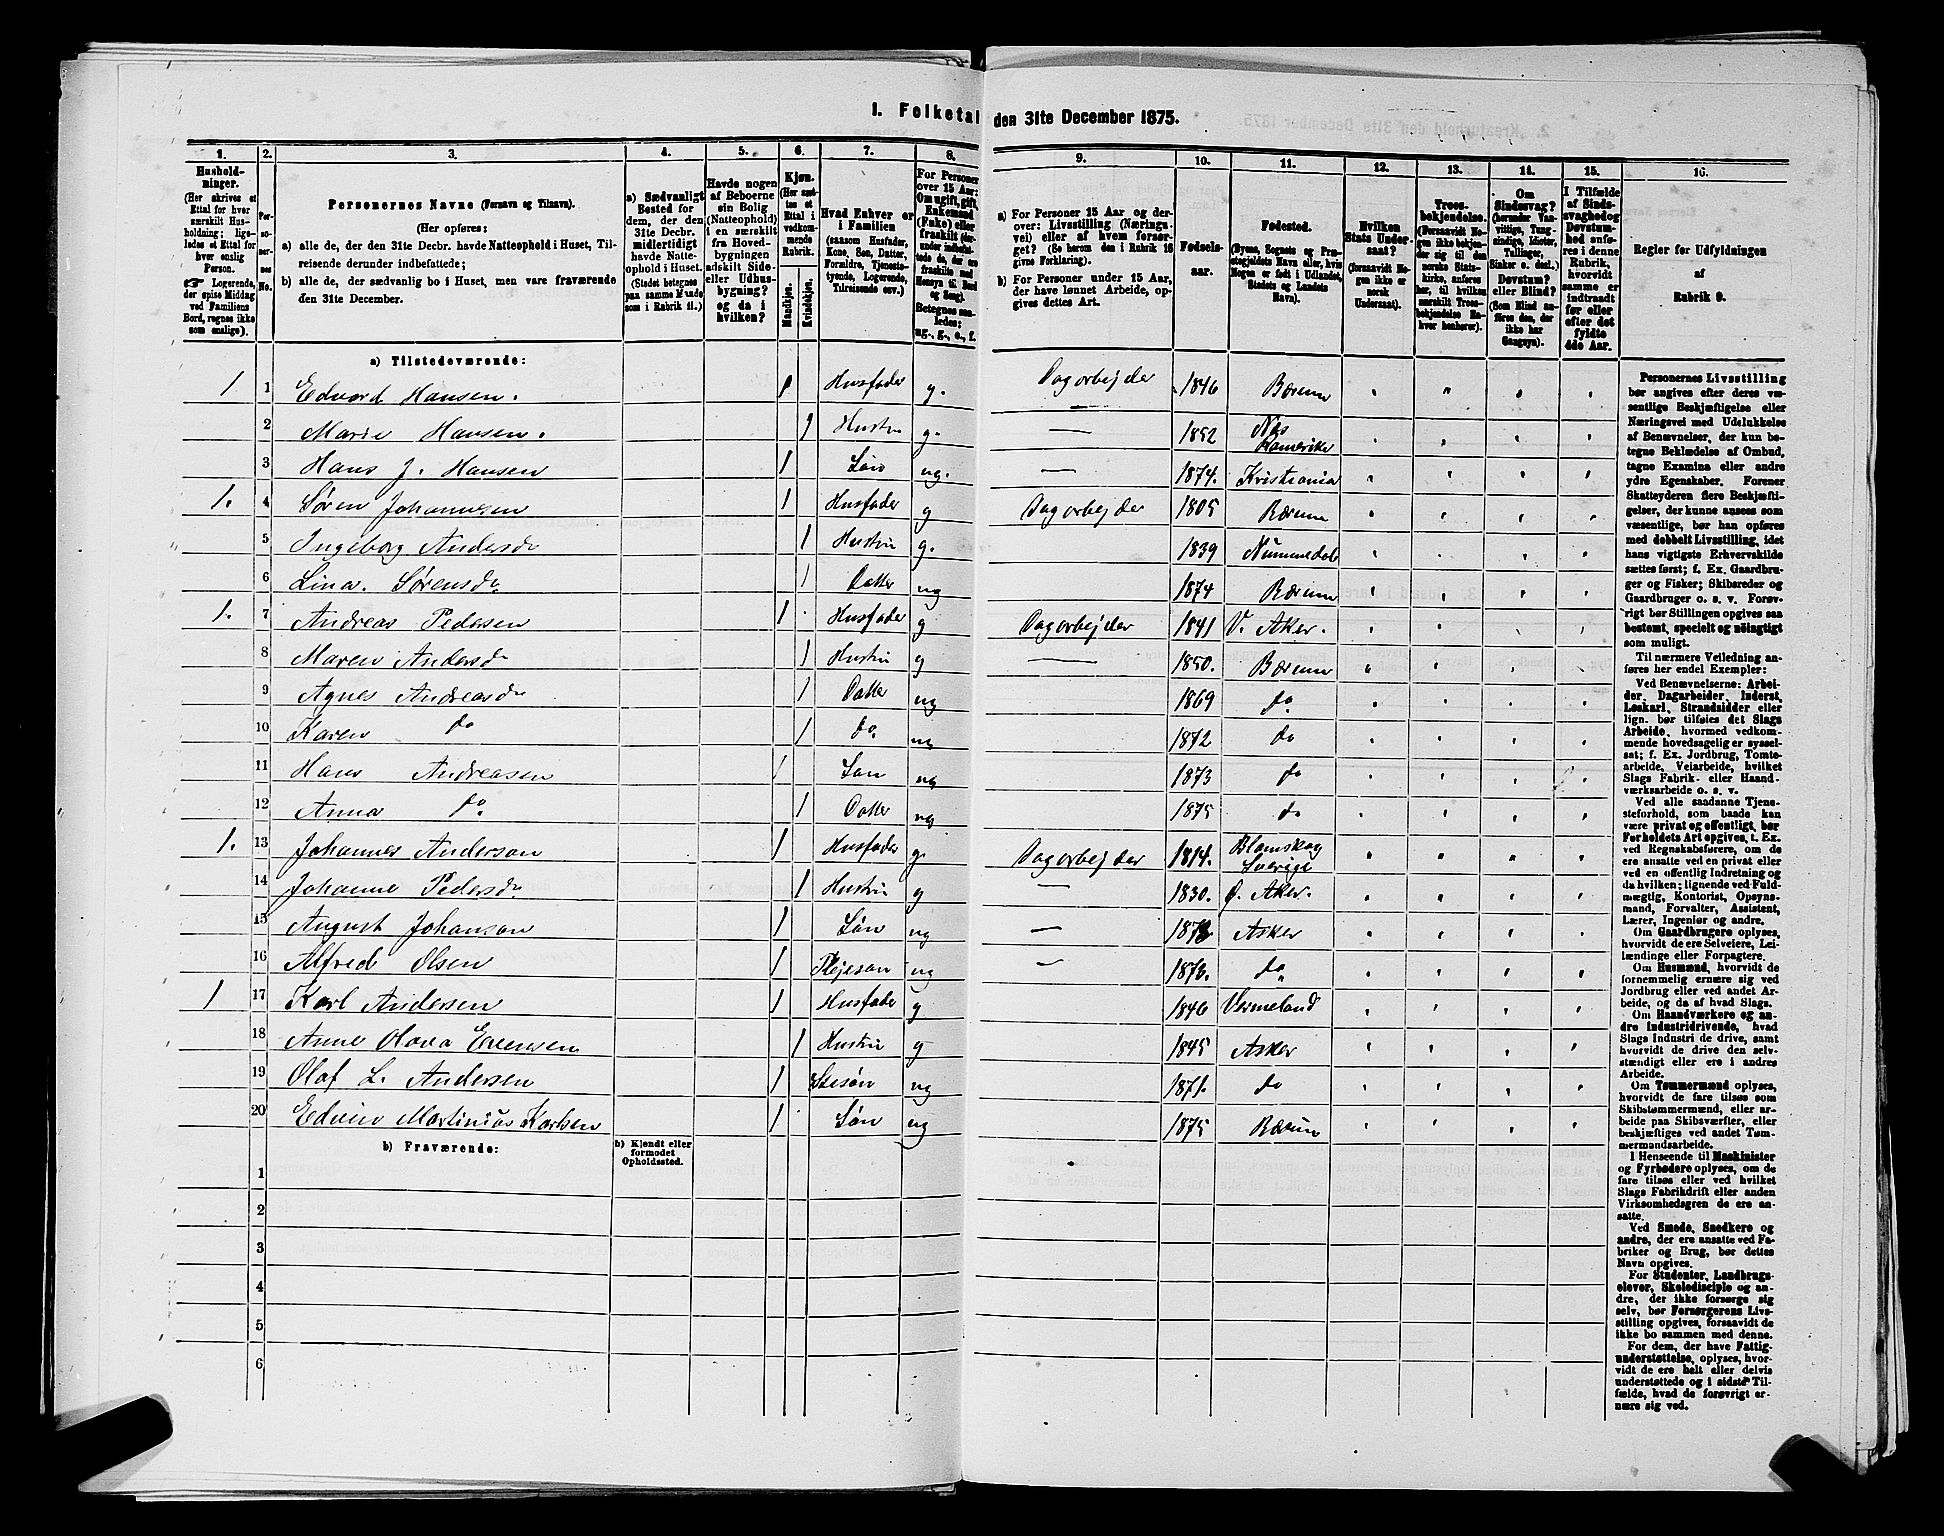 I. Folketal den 31te December 1875.
1. 2. 3. 4. 5. 6. 7. 8. 9. 10. 11. 12. 13. 14. 15. 16.
Hushold-
ninger.
(Her skrives et
Ettal for hver
særskilt Hus-
holdning; lige-
ledes et Ettal for
hver enslig
Person.
☞ Logerende,
der spise Middag
ved Familiens
Bord, regnes ikke
som enslige).
Per-
soner-
nes
No.
Personernes Navne (Fornavn og Tilnavn).
(Her opføres:
a) alle de, der den 31te Decbr. havde Natteophold i Huset, Til-
reisende derunder indbefattede;
b) alle de, der sædvanlig bo i Huset, men vare fraværende
den 31te December.
a) Sædvanligt
Bosted for
dem, der den
31te Decbr.
midlertidigt
havde Natte-
ophold i Huset.
(Stedet betegnes
paa samme Maade
som i Rubrik 11.)
Havde nogen
af Beboerne
sin Bolig
(Natteophold)
i en særskilt
fra Hoved-
bygningen
adskilt Side-
eller Udhus-
bygning?
og da i
hvilken?
Kjøn.
(Her sæt-
tes et
Ettal i
vedkom-
mende
Rubrik.
Mandkjøn.
Kvindekjøn.
Hvad Enhver er
i Familien
(saasom Husfader,
Kone, Søn, Datter,
Forældre, Tjeneste-
tyende, Logerende,
Tilreisende osv.)
For Personer
over 15 Aar:
Om ugift, gift,
Enkemand
(Enke) eller
fraskilt (der-
under indbe-
fattede de, der
ere fraskilte med
Hensyn til Bord
og Seng).
Betegnes saa-
ledes:
ug., g., e., f.
a) For Personer 15 Aar og der-
over: Livsstilling (Nærings-
vei) eller af hvem forsør-
get? (Se herom den i Rubrik 16
givne Forklaring).
b) For Personer under 15 Aar,
der have lønnet Arbeide, op-
gives dettes Art.
Fødsels-
aar.
Fødested.
(Byens, Sognets og Præ-
stegjeldets Navn eller, hvis
Nogen er født i Udlandet,
Stedets og Landets
Navn).
Hvilken
Stats Under-
saat?
(forsaavidt No-
gen ikke er
norsk
Undersaat).
Troes-
bekjendelse.
(Forsaavidt No-
gen ikke bekjen-
der sig til den
norske Stats-
kirke, anføres
her, til hvilken
særskilt Troes-
bekjendelse En-
hver henhører).
Om
Sindssvag?
(herunder Van-
vittige, Tung-
sindige, Idioter,
Tullinger,
Sinker o. desl.)
Døvstum?
eller Blind?
(Som Blind an-
føres den, der
ikke har
Gangsyn).
I Tilfælde
af Sinds-
svaghed og
Døvstum-
hed anfø-
res i denne
Rubrik,
hvorvidt
samme er
indtraadt
før eller
efter det
fyldte
4de Aar.
Regler for Udfyldningen
af
Rubrik 9.
a) Tilstedeværende:
1 1 Edvard Hansen. 1 Husfader g. Dagarbejder 1846 Bærum
2 Marie Hansen. 1 Hustru g. — 1852 Næs
Romerike
3 Hans J. Hansen 1 Søn ug. — 1874. Kristiania
1. 4 Søren Johannesen 1 Husfader g Dagarbejder 1805 Bærum
5 Ingeborg Andersdr 1 Hustru g. 1839 Nummedal
6 Lina. Sørensdr 1 Datter ug 1874 Bærum
1. 7 Andreas Pedersen 1 Husfader g Dagarbejder 1841 V. Aker.
8 Maren Andersdr 1 Hustru g — 1850. Bærum
9 Agnes Andreasdr 1 Datter ug 1869 do
10 Karen do 1 do ug 1872 do
11 Hans Andreasen 1 Søn ug 1873 do
12 Anna do 1 Datter ug 1875 do
1. 13 Johannes Anderson 1 Husfader g. Dagarbejder 1814. Blomskog
Sverige
14 Johanne Pedersdr 1 Hustru g — 1830. Ø. Aker.
15 August Johanson 1 Søn ug — 1872 Asker
16 Alfred Olsen 1 Plejesøn ug — 1873. do
1 17 Karl Andersen 1 Husfader g 1846 Vermeland
18 Anne Olava Evensen 1 Hustru g 1845 Asker
19 Olaf L. Andersen 1 Stesøn ug 1871. do
20 Edvin Martinius Karlsen 1 Søn ug 1875 Bærum
b) Fraværende:
b) Kjendt eller
formodet
Opholdssted.
1
2
3
4
5
6
Personernes Livsstilling
bør angives efter deres væ-
sentlige Beskjæftigelse eller
Næringsvei med Udelukkelse
af Benævnelser, der kun be-
tegne Beklædelse af Ombud,
tagne Examina eller andre
ydre Egenskaber. Forener
Skatteyderen flere Beskjæfti-
gelser, der kunne ansees som
væsentlige, bør han opføres
med dobbelt Livsstilling, idet
hans vigtigste Erhvervskilde
sættes først; f. Ex. Gaardbru-
ger og Fisker; Skibsreder og
Gaardbruger o. s. v. Forøv-
rigt bør Stillingen opgives saa
bestemt, specielt og nøiagtigt
som muligt.
Til nærmere Veiledning an-
føres her endel Exempler:
Ved Benævnelserne: Arbei-
der, Dagarbeider, Inderst,
Løskarl, Strandsidder eller
lign. bør tilføies det Slags
Arbeide, hvormed vedkom-
mende hovedsagelig er syssel-
sat; f. Ex. Jordbrug, Tomte-
arbeide, Veiarbeide, hvilket
Slags Fabrik- eller Haand-
værksarbeide o. s. v.
Ved alle saadanne Tjene-
steforhold, som baade kan
være privat og offentligt, bør
Forholdets Art opgives, t. Ex.
ved Regnskabsførere, om de
ere ansatte ved en privat eller
ved en offentlig Indretning og
da hvilken; lignende ved Fuld-
mægtig, Kontorist, Opsyns-
mand, Forvalter, Assistent,
Lærer, Ingeniør og andre.
Om Gaardbrugere oplyses,
hvorvidt de ere Selveiere, Lei-
lændinge eller Forpagtere.
Om Husmænd, hvorvidt de
fornemmelig ernære sig ved
Jordbrug eller ved andet Ar-
beide, og da af hvad Slags.
Om Haandværkere og an-
dre Industridrivende, hvad
Slags Industri de drive, samt
hvorvidt de drive den selv-
stændigt eller ere i andres
Arbeide.
Om Tømmermænd oplyses,
hvorvidt de fare tilsøs som
Skibstømmermænd, eller ar-
beide paa Skibsværfter, eller
beskjæftiges ved andet Tøm-
mermandsarbeide.
I Henseende til Maskinister
og Fyrbødere oplyses, om de
fare tilsøs eller ved hvilket
Slags Fabrikdrift eller anden
Virksomhedsgren de ere an-
satte.
Ved Smede, Snedkere og
andre, der ere ansatte ved Fa-
briker og Brug, bør dettes
Navn opgives.
For Studenter, Landbrugs-
elever, Skoledisciple og an-
dre, der ikke forsørge sig
selv, bør Forsørgerens Livs-
stilling opgives, forsaavidt de
ikke bo sammen med denne.
For dem, der have Fattig-
understøttelse, oplyses, hvor-
vidt de ere helt eller delvis
understøttede og i sidste Til-
fælde, hvad de forøvrigt er-
nære sig ved.